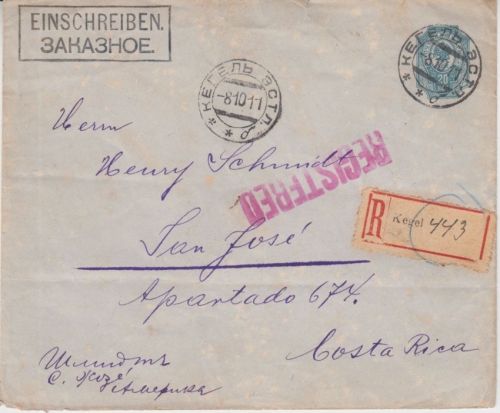 EINSCHREIBEN.
ЗАКАЗНОЕ.
КЕГЕЛЬ ЭСТЛ.
-8.10.11
КЕГЕЛЬ ЭСТЛ.
-8.10
20
Herrn
Henry Schmidt
REGISTERED
R Kegel 443
San José
Apartado 674.
Costa Rica
Шмидтъ
С. Жозе
Америка